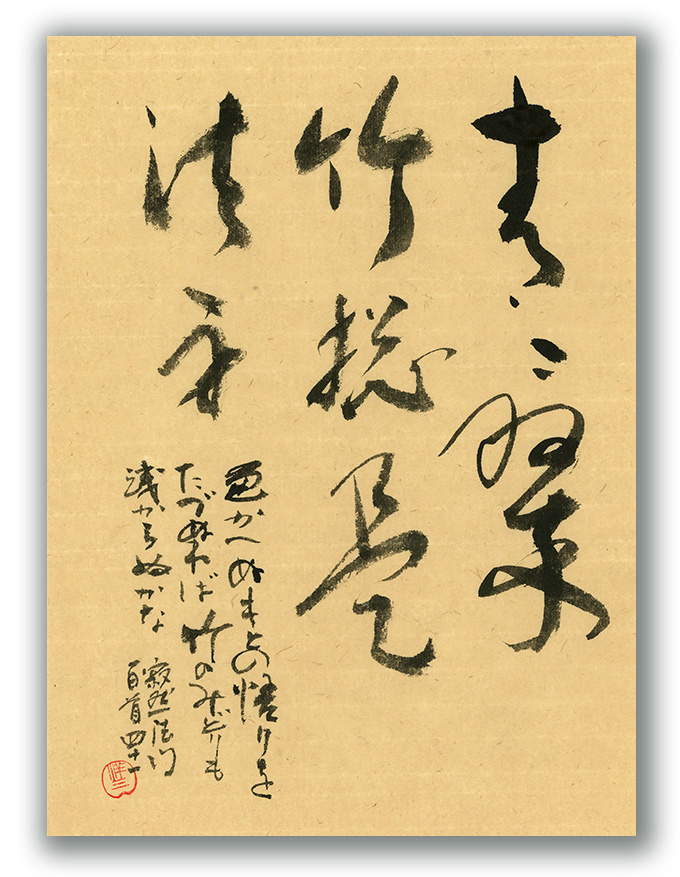 青々翠
竹総是
法身
色かへぬもとの悟りを
たづぬれば竹のみどりも
浅からぬかな
寂然法門
百首四十一